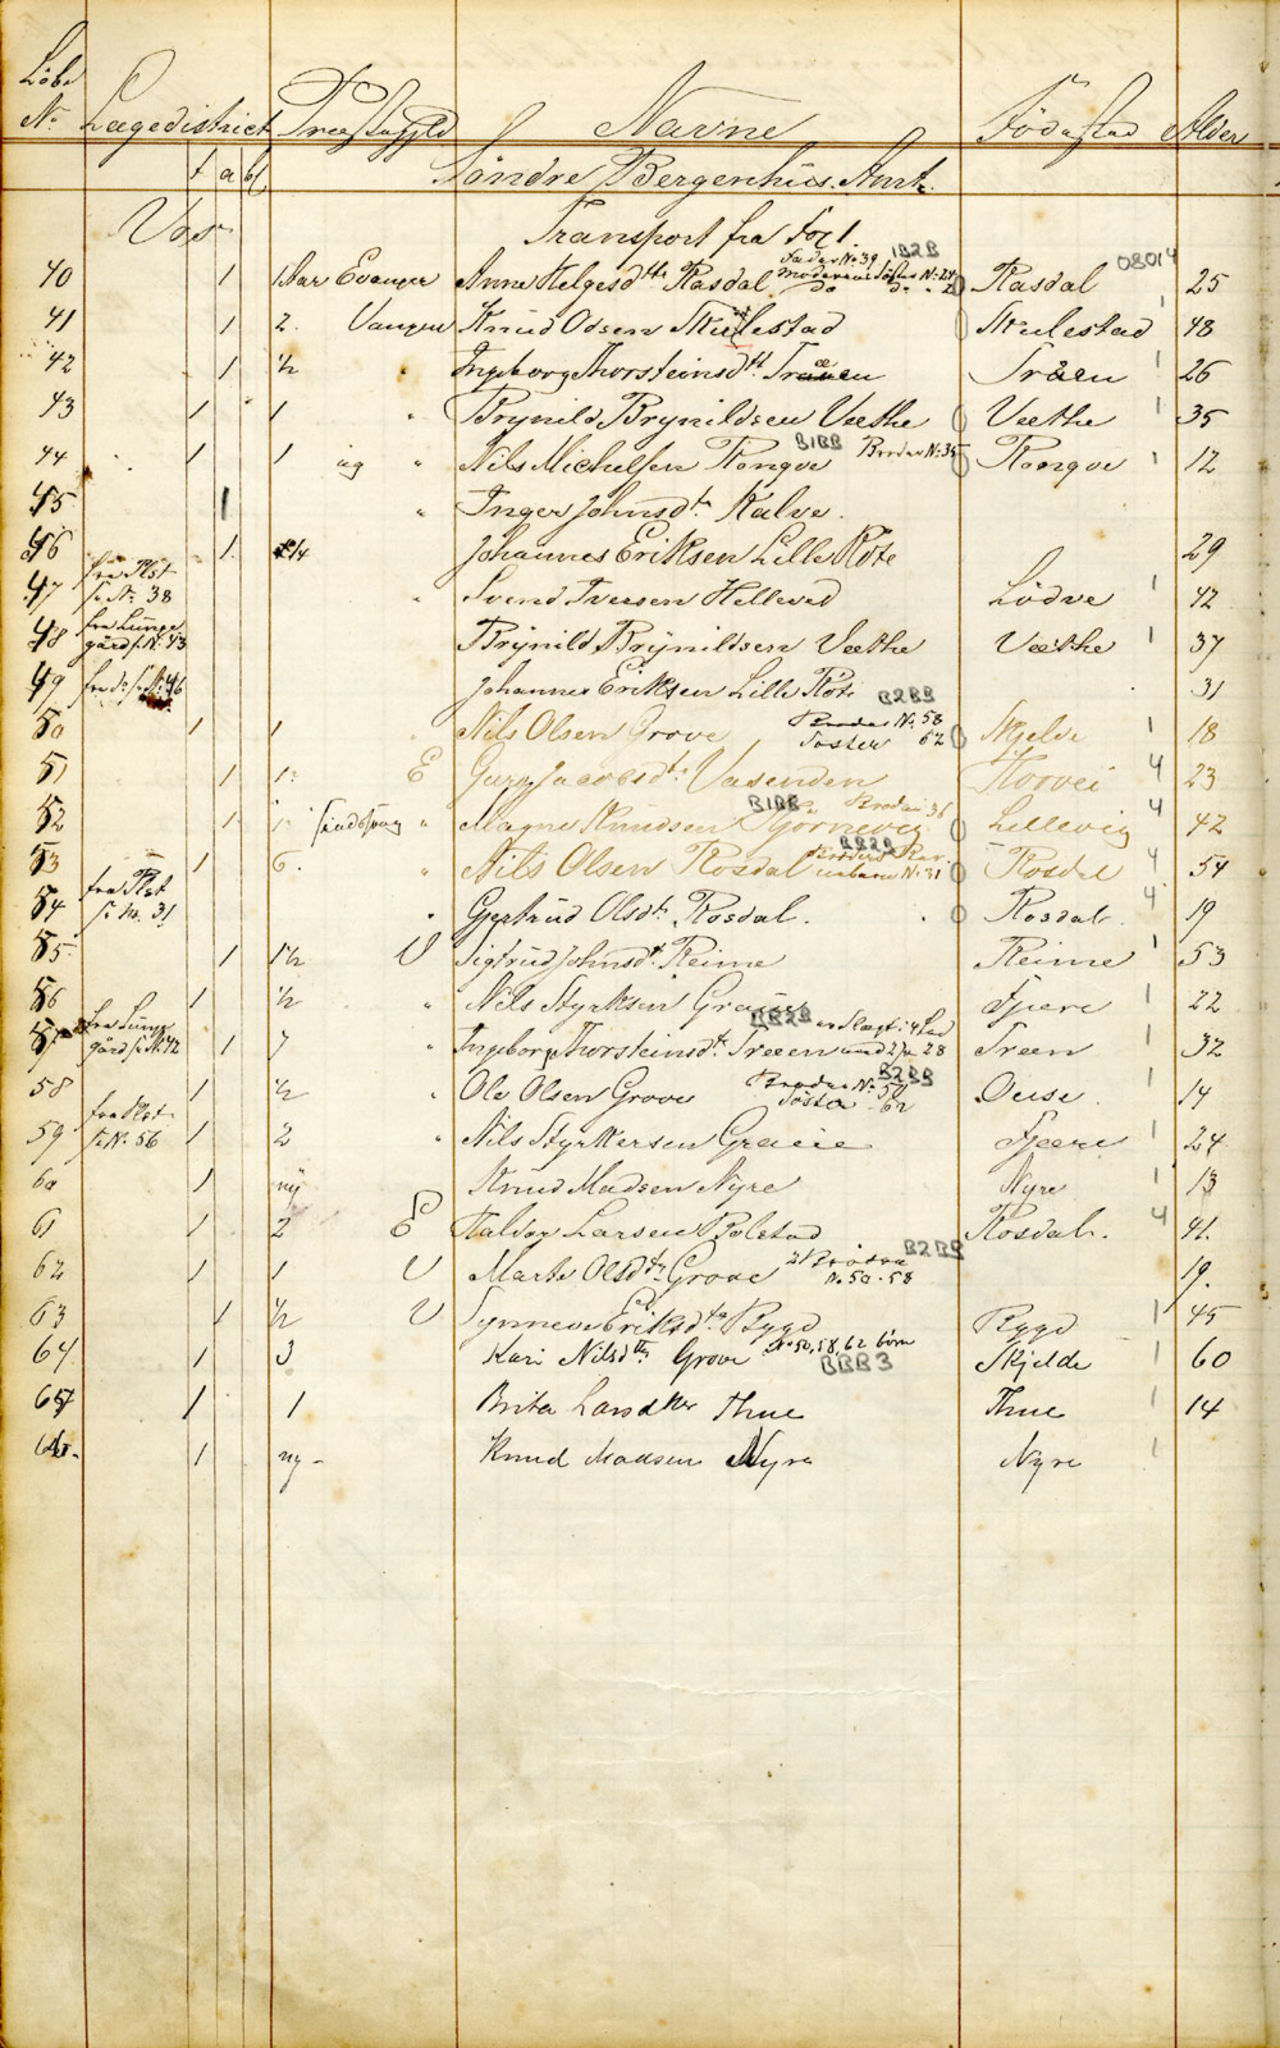 Löbe No Lægedistrict Præstegjeld Navne Födested Alder
t a bl Söndre Bergenhus Amt.
Vos Transport fra Fol 1.
Fader No 39 1B2B 08014
40 1 1 Aar Evanger Anne Helgesdtr Rasdal Moderens Söster No 24 Rasdal 25
do do
41 1 2. Vangen Knud Odsen Skulestad Skulestad 1 48
42 1 1/2 " Ingeborg Thorsteinsdtr Træen Tråen 1 26
43 1 1 " Brynild Brynildsen Veethe Veethe 1 35
44 1 1 ug " Nils Michelsen Rongve B1BB Broder No 35 Rongve 1 12
45 1 " Inger Johnsdtr Kalve.
46 1 1/4 Johannes Eriksen Lille Röte 29
47 fra Plst se No 38 " Svend Iversen Helleved Lödve 1 42
48 fra Lungegård s. No 43 Brynild Brynildsen Veethe Veethe 1 37
49 fra do se No 46 Johannes Eriksen Lille Röte 31
B2BB
50 1 1 Nils Olsen Grove Broder No 58 Skjelde 1 18
Söster 62
51 1 1 E Guro Jacobsdtr Vasenden Horvei 4 23
52 1 1 sindssvag " Magne Knudsen Björnevig B1BB Broder 36 Lillevig 4 42
BB2B
53 1 6. " Nils Olsen Rosdal No 31 Rosdal 4 54
54 fra Plst se No. 31 " Gjertrud Olsdtr Rosdal. Rosdal. 4 19
55 1 1 1/2 V Sigtrud Johnsdtr Reime Reime 1 53
56 1 1/2 " Nils Styrksen Graue Fjære 1 22
BB2B er Slægt i 4 Led
57 fra Lungegård se No 42 1 7 " Ingeborg Thorsteinsdtr Treeen med 28 Treen 1 32
B2BB
58 1 1/2 " Ole Olsen Grove Broder No 50 Ouse. 1 14
Söster 62
59 fra Plst se No 56 1 2 " Nils Styrkersen Graue Fjære 1 24
60 1 ny Knud Madsen Nyre Nyre 1 13
61 1 2 E Haldor Larsen Bolstad Rosdal. 4 41.
62 1 1 V Marta Olsdtr Grove 2 Brödre B2BB 19.
No 50. 58
63 1 1/2 V Synneve Eriksdtr Rygg Rygg 1 45
64 1 3 Kari Nilsdtr Grove No 50, 58, 62 börn Skjelde 1 60
BBB3
65 1 1 Brita Larsdtter Thue Thue 1 14
66. 1 ny - Knud Madsen Nyre Nyre 1